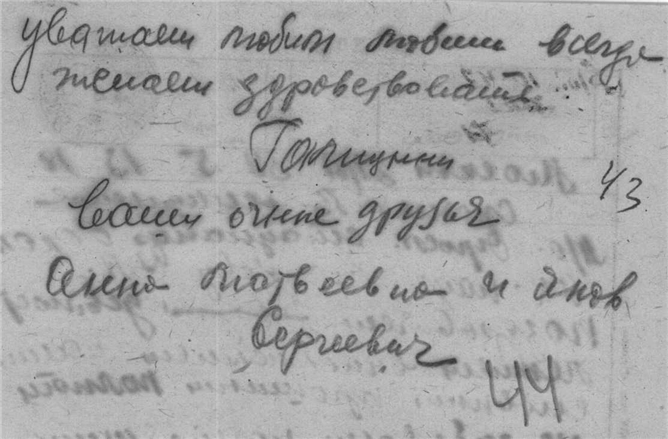 уважаем любим любим всегда
желаем здравствования.
Галицини 43
ваши очине друзья
Анна Матвеевна и Яков
Сергеевич
44